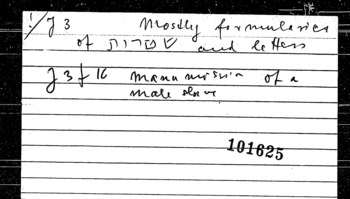 J 3 Mostly formularies
of שטרות and letters
J 3 f 16 manumission of a
male slave
101625